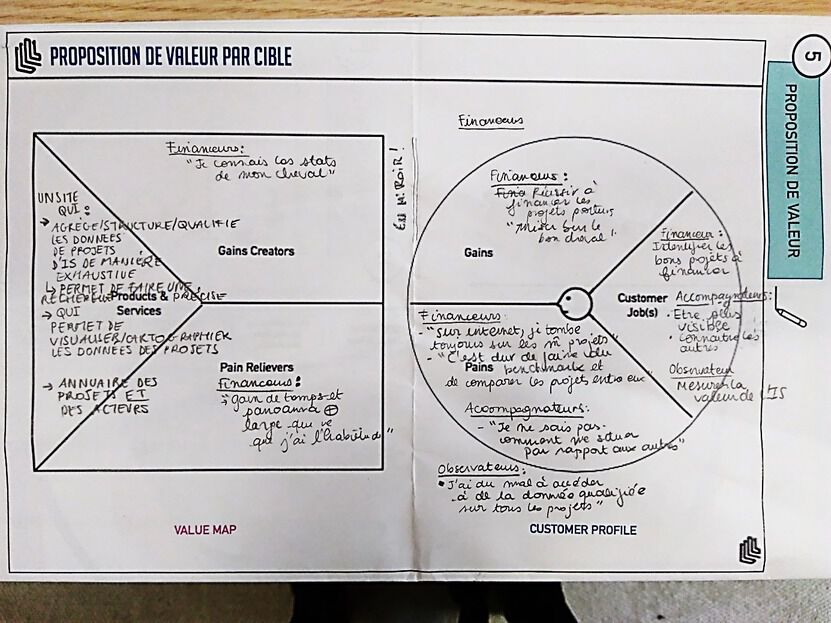 PROPOSITION DE VALEUR PAR CIBLE
5
PROPOSITION DE VALEUR
Financeurs:
"Je connais les stats
de mon cheval"
EN MIROIR!
UN SITE
QUI:
→ AGRÈGE/STRUCTURE/QUALIFIE
LES DONNÉES
DE PROJETS
D'IS DE MANIÈRE
EXHAUSTIVE
↳ PERMET DE FAIRE UNE
RECHERCHE PRÉCISE
→ QUI
PERMET DE
VISUALISER/CARTOGRAPHIER
LES DONNÉES DES PROJETS
→ ANNUAIRE DES
PROJETS ET
DES ACTEURS
Gains Creators
Products &
Services
Pain Relievers
Financeurs:
gain de temps et
panorama ⊕
large que ce
que j'ai l'habitude"
VALUE MAP
Financeurs
Financeurs:
Réussir à
financer les
projets porteurs
"miser sur le
bon cheval"
Gains
Financeur:
Identifier les
bons projets à
financer
Customer
Job(s)
Accompagnateurs:
• Etre plus
visible
• connaitre les
autres
Observateur
Mesurer la
valeur de l'IS
Financeurs:
- "Sur internet, je tombe
toujours sur les m̂ projets"
- "C'est dur de faire du
benchmark et
de comparer les projets entre eux"
Pains
Accompagnateurs:
- "Je ne sais pas
comment me situer
par rapport aux autres"
Observateurs:
• "J'ai du mal à accéder
à de la donnée qualifiée
sur tous les projets"
CUSTOMER PROFILE